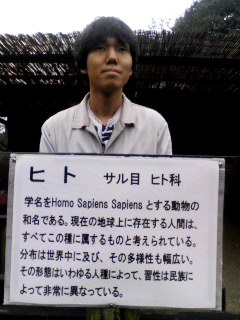 ヒト サル目 ヒト科
学名をHomo Sapiens Sapiens とする動物の
和名である。現在の地球上に存在する人間は、
すべてこの種に属するものと考えられている。
分布は世界中に及び、その多様性も幅広い。
その形態はいわゆる人種によって、習性は民族に
よって非常に異なっている。